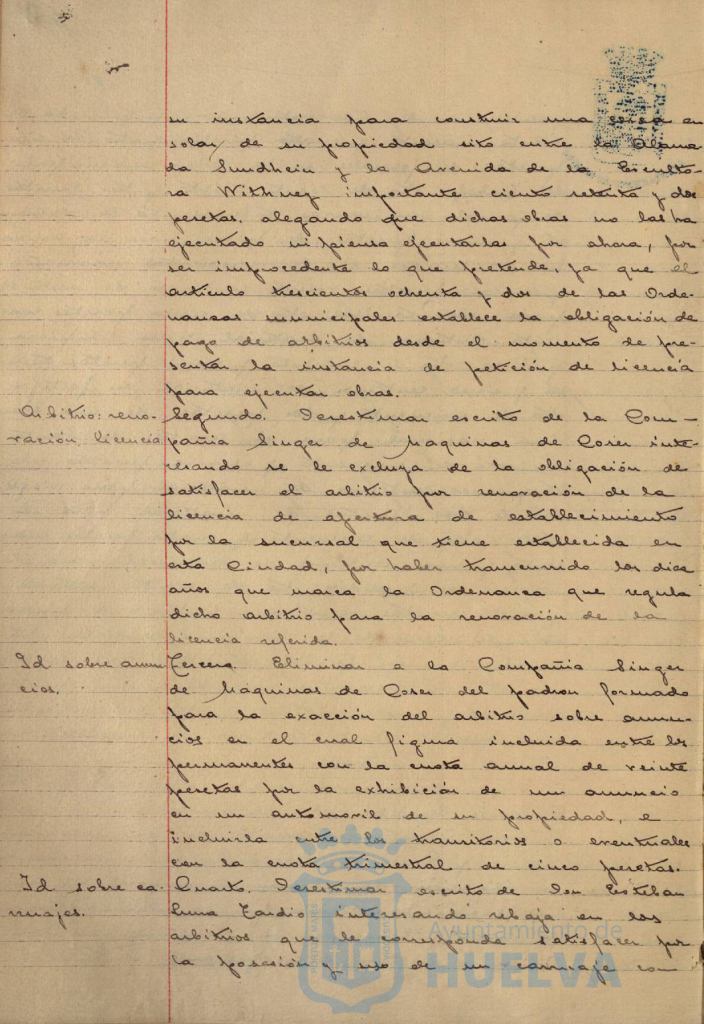 su instancia para construir una casa en
solar de su propiedad sito entre la Alame
da Sundhein y la Avenida de la Esculto-
ra Withney importante ciento setenta y dos
pesetas, alegando que dichas obras no las ha
ejecutado ni piensa ejecutarlas por ahora, por
ser improcedente lo que pretende, ya que el
artículo trescientos ochenta y dos de las Orde-
nanzas municipales establece la obligación de
pago de arbitrios desde el momento de pre-
sentar la instancia de petición de licencia
para ejecutar obras.
Arbitrio: reno-
vación, licencia
Segundo. Desestimar escrito de la Com-
pañia Singer de Maquinas de Coser inte-
resando se le excluya de la obligación de
satisfacer el arbitrio por renovación de la
licencia de apertura de establecimiento
por la sucursal que tiene establecida en
esta Ciudad, por haber transcurrido los diez
años que marca la Ordenanza que regula
dicho arbitrio para la renovación de la
licencia referida.
Id sobre anun
cios.
Tercero. Eliminar a la Compañia Singer
de Máquinas de Coser del padron formado
para la exacción del arbitrio sobre anun-
cios en el cual figura incluida entre los
permanentes con la cuota anual de veinte
pesetas por la exhibición de un anuncio
en un automovil de su propiedad, e
incluirla entre los transitorios o eventuales
con la cuota trimestral de cinco pesetas.
Id sobre ca-
rruajes.
Cuarto. Desestimar escrito de Don Esteban
Luna Tardio interesando rebaja en los
arbitrios que le corresponda satisfacer por
la posesión y uso de un carruaje con
Ayuntamiento de
HUELVA